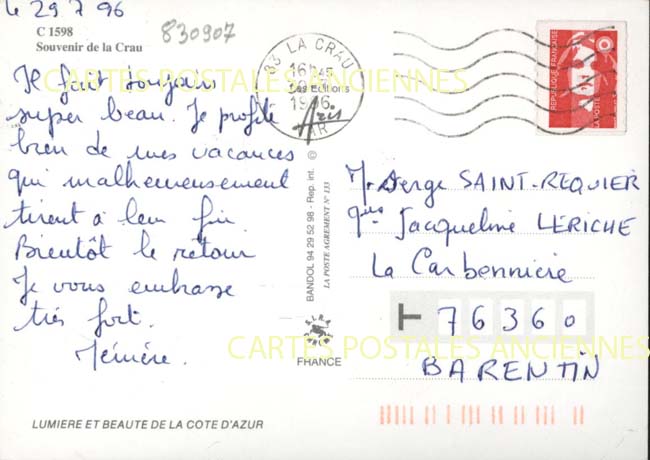 le 29 7 96
C 1598
Souvenir de la Crau
830907
83 LA CRAU
16H45
1996
VAR
Les Editions
Aris
REPUBLIQUE FRANCAISE
LA POSTE
CARTES POSTALES ANCIENNES
Il fait toujours
super beau. Je profite
bien de mes vacances
qui malheureusement
tirent à leur fin.
Bientôt le retour
Je vous embrasse
très fort.
BANDOL 94 29 52 98 - Rep. int. ©
LA POSTE AGREMENT N° 133
FRANCE
Mr Serge SAINT-REQUIER
Jacqueline LERICHE
La Carbonnière
T 76360
BARENTIN
CARTES POSTALES ANCIENNES
LUMIERE ET BEAUTE DE LA COTE D'AZUR